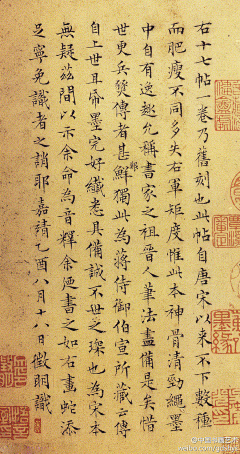 右十七帖一卷乃舊刻也此帖自唐宋以來不下數種
而肥瘦不同多失右軍矩度惟此本神骨清勁繩墨
中自有逸趣允稱書家之祖晉人筆法盡備是矣惜
世更兵燹傳者甚鮮獨此為蔣侍御伯宣所藏云傳
自上世且帋墨完好纖悉具備誠不世之琛也為宋本
無疑茲間以示余命為音釋余煙書之如右畫蛇添
足寧免識者之誚耶嘉靖乙酉八月十八日徵明識